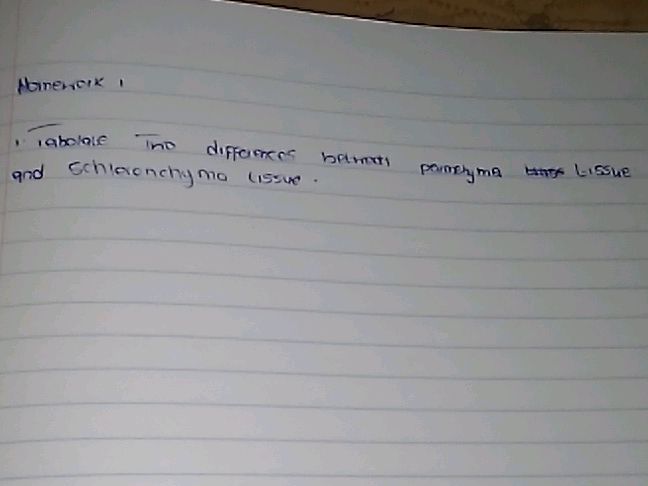 Homework 1
1. Tabolate Two differences between parnchyma tissue
and Schlerenchyma tissue.